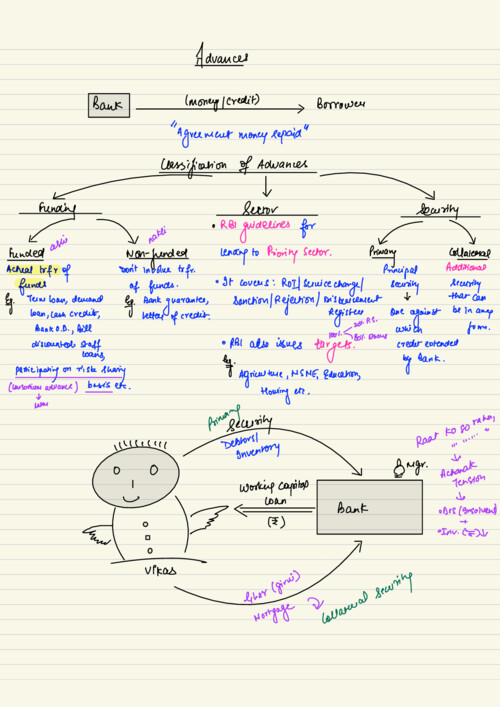 Advances
Bank
(money/credit)
Borrower
"Agreement money repaid"
Classification of Advances
Funding
Funded
Actual trfr of
funds
Eg. Term loan, demand
loan, cash credit,
Bank O.D., Bill
discounted staff
loans,
participating on risk sharing
basis etc.
Non-funded
Don't involve trfr.
of funds.
Eg. Bank guarantee,
letter of credit.
Sector
• RBI guidelines for
lending to Priority Sector.
• It covers: ROI/Service charge/
Sanction/Rejection/Disbursement
Register
• RBI also issues targets.
Eg.
Agriculture, MSME, Education,
Housing etc.
Security
Primary
Principal
Security
One against
which
credit extended
by Bank.
Collateral
Additional
Security
that can
be in any
form.
Primary
Security
Debtors/
Inventory
Working Capital
Loan
(₹)
Bank
Mgr.
Vikas
Mortgage
Collateral Security
Raat ko so raha,
Achanak
Tension
• Drs (Insolvent)
• Inv. (₹)↓